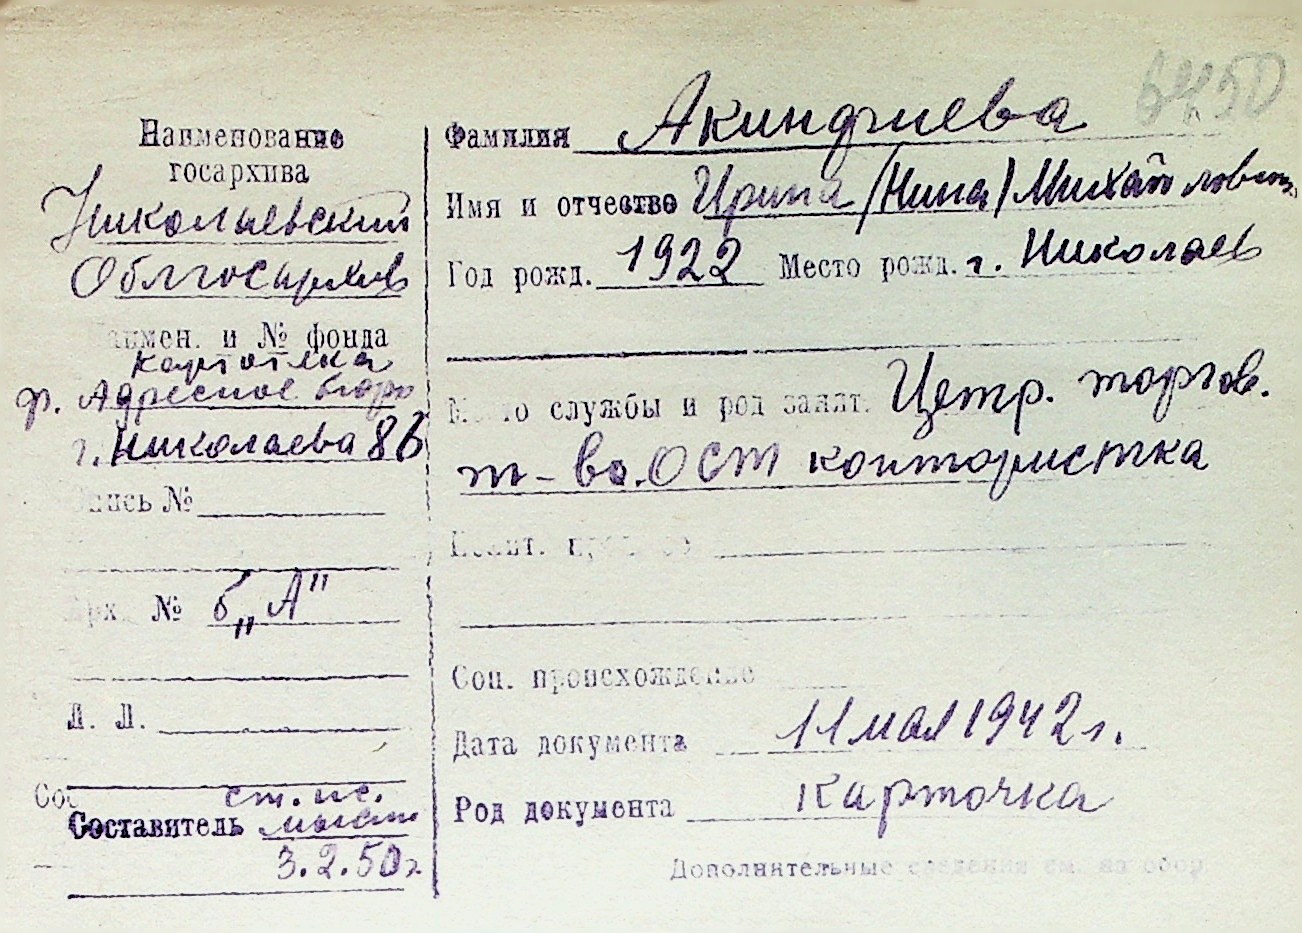 6450
Наименование
госархива
Николаевский
Облгосархив
Наимен. и № фонда
картотека
ф. Адресное бюро
г. Николаева 86
Опись №
Арх. № б „А"
Л. Л.
Сос
ст. н.с.
Составитель
3.2.50 г.
Фамилия Акиндгиева
Имя и отчество Ирина (Нина) Михайловна
Год рожд. 1922 Место рожд. г. Николаев
Место службы и род занят. Цетр. торгов.
т-во. ОСТ контористка
Соц. происхождение
Дата документа 11 мая 1942 г.
Род документа карточка
Дополнительные сведения см. на обор